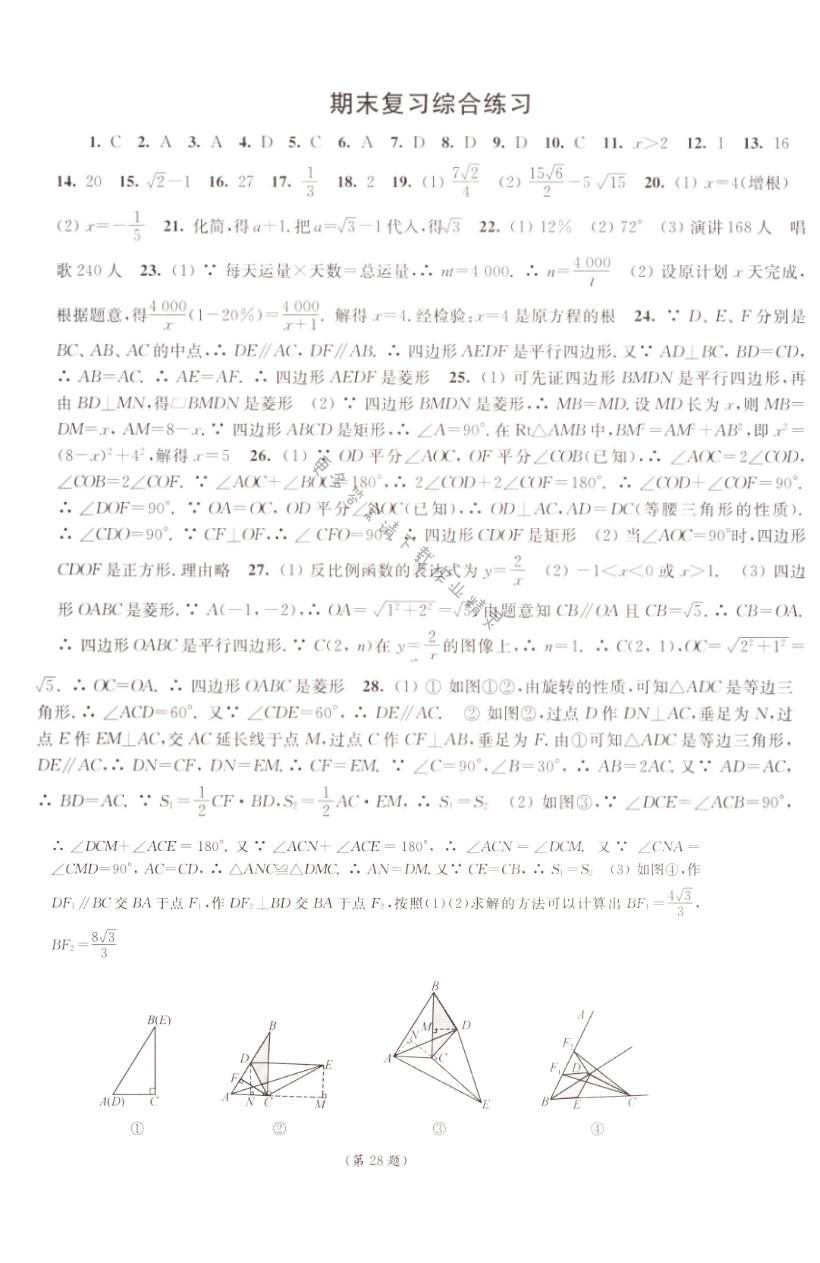 期末复习综合练习
1. C 2. A 3. A 4. D 5. C 6. A 7. D 8. D 9. D 10. C 11. x>2 12. 1 13. 16
14. 20 15. √2-1 16. 27 17. 1/3 18. 2 19. (1) 7√2/4 (2) 15√6/2-5√15 20. (1) x=4(增根)
(2) x=-1/5 21. 化简,得a+1.把a=√3-1代入,得√3 22. (1) 12% (2) 72° (3) 演讲168人 唱
歌240人 23. (1) ∵ 每天运量×天数=总运量,∴ nt=4 000. ∴ n=4 000/t (2) 设原计划x天完成,
根据题意,得4 000/x(1-20%)=4 000/(x+1). 解得x=4.经检验:x=4是原方程的根 24. ∵ D、E、F分别是
BC、AB、AC的中点,∴ DE∥AC, DF∥AB. ∴ 四边形AEDF是平行四边形.又∵ AD⊥BC, BD=CD,
∴ AB=AC. ∴ AE=AF. ∴ 四边形AEDF是菱形 25. (1) 可先证四边形BMDN是平行四边形,再
由BD⊥MN,得▱BMDN是菱形 (2) ∵ 四边形BMDN是菱形,∴ MB=MD.设MD长为x,则MB=
DM=x, AM=8-x.∵ 四边形ABCD是矩形,∴ ∠A=90°.在Rt△AMB中,BM²=AM²+AB²,即x²=
(8-x)²+4²,解得x=5 26. (1) ∵ OD平分∠AOC, OF平分∠COB(已知),∴ ∠AOC=2∠COD,
∠COB=2∠COF. ∵ ∠AOC+∠BOC=180°,∴ 2∠COD+2∠COF=180°. ∴ ∠COD+∠COF=90°.
∴ ∠DOF=90°. ∵ OA=OC, OD平分∠AOC(已知),∴ OD⊥AC, AD=DC(等腰三角形的性质).
∴ ∠CDO=90°. ∵ CF⊥OF,∴ ∠CFO=90°. ∴ 四边形CDOF是矩形 (2) 当∠AOC=90°时,四边形
CDOF是正方形.理由略 27. (1) 反比例函数的表达式为y=2/x (2) -1<x<0或x>1. (3) 四边
形OABC是菱形.∵ A(-1,-2),∴ OA=√(1²+2²)=√5.由题意知CB∥OA且CB=√5.∴ CB=OA.
∴ 四边形OABC是平行四边形.∵ C(2, n)在y=2/x的图像上,∴ n=1. ∴ C(2, 1),OC=√(2²+1²)=
√5. ∴ OC=OA. ∴ 四边形OABC是菱形 28. (1) ① 如图①②,由旋转的性质,可知△ADC是等边三
角形.∴ ∠ACD=60°. 又∵ ∠CDE=60°, ∴ DE∥AC. ② 如图②,过点D作DN⊥AC,垂足为N,过
点E作EM⊥AC,交AC延长线于点M,过点C作CF⊥AB,垂足为F.由①可知△ADC是等边三角形,
DE∥AC,∴ DN=CF, DN=EM.∴ CF=EM. ∵ ∠C=90°,∠B=30°, ∴ AB=2AC.又∵ AD=AC,
∴ BD=AC. ∵ S₁=1/2CF·BD,S₂=1/2AC·EM, ∴ S₁=S₂ (2) 如图③,∵ ∠DCE=∠ACB=90°,
∴ ∠DCM+∠ACE=180°.又∵ ∠ACN+∠ACE=180°, ∴ ∠ACN=∠DCM. 又∵ ∠CNA=
∠CMD=90°, AC=CD,∴ △ANC≌△DMC. ∴ AN=DM.又∵ CE=CB,∴ S₁=S₂ (3) 如图④,作
DF₁∥BC交BA于点F₁,作DF₂⊥BD交BA于点F₂,按照(1)(2)求解的方法可以计算出BF₁=4√3/3,
BF₂=8√3/3
B(E) A(D) C
B D E F A N C M
B M N D A C E
A F₂ F₁ D B E C
① ② ③ ④
(第28题)